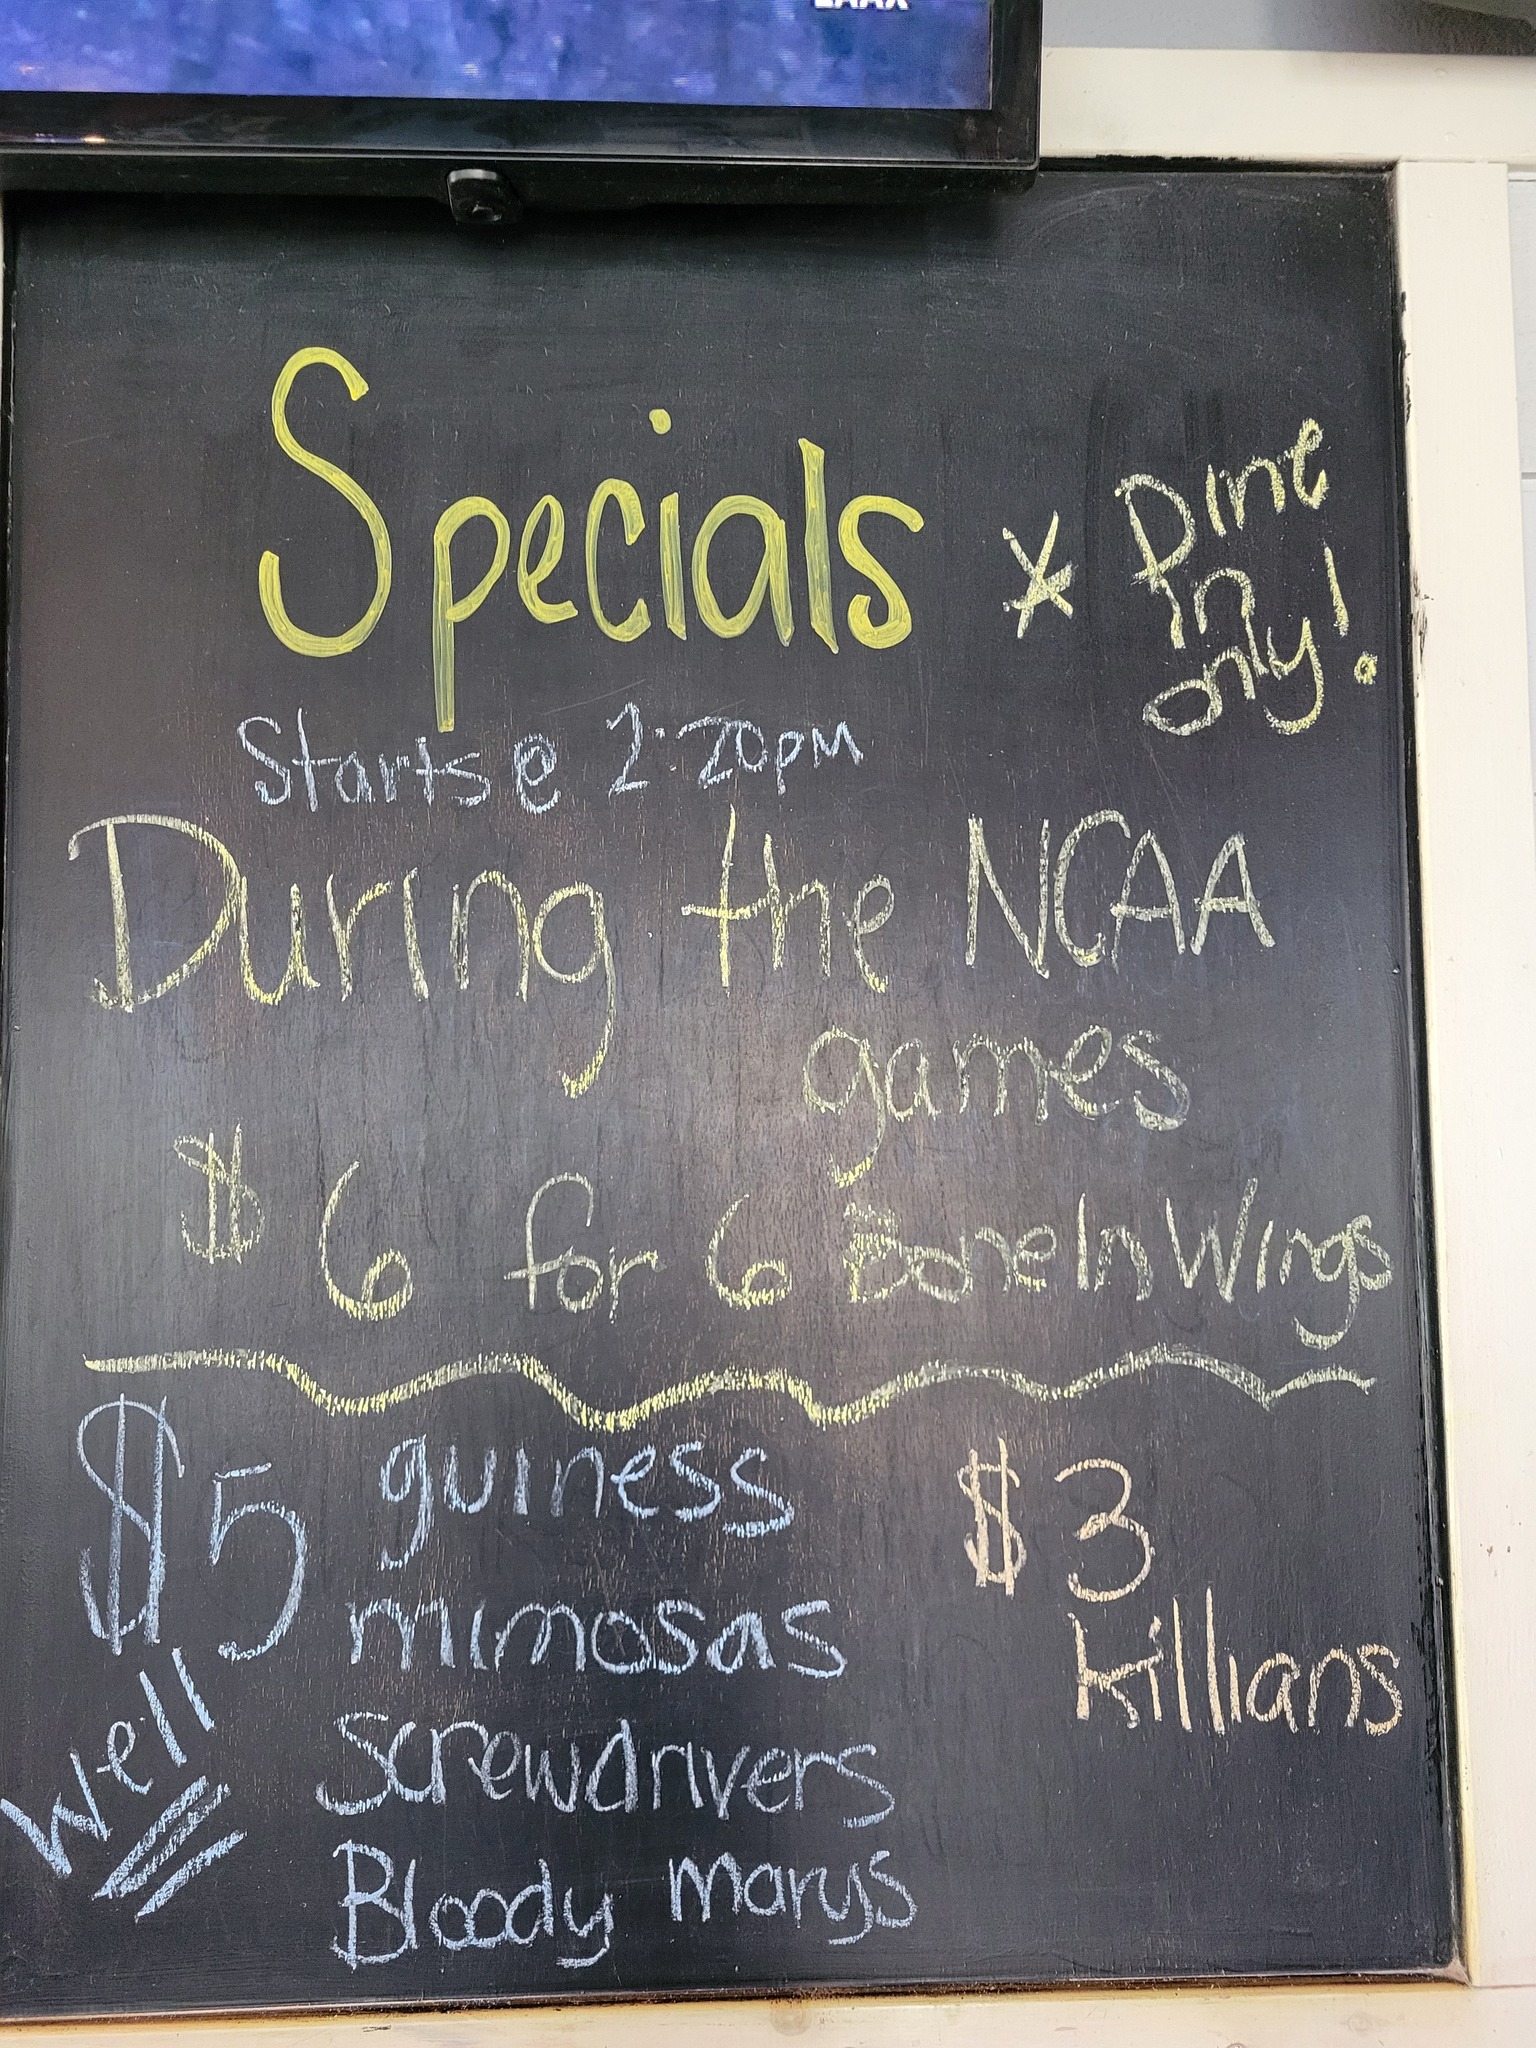 Specials
* Dine
in
only!
Starts @ 2:20pm
During the NCAA
games
$6 for 6 Bone In Wings
$5 guiness
mimosas
Screwdrivers
Bloody marys
well
$3
killians